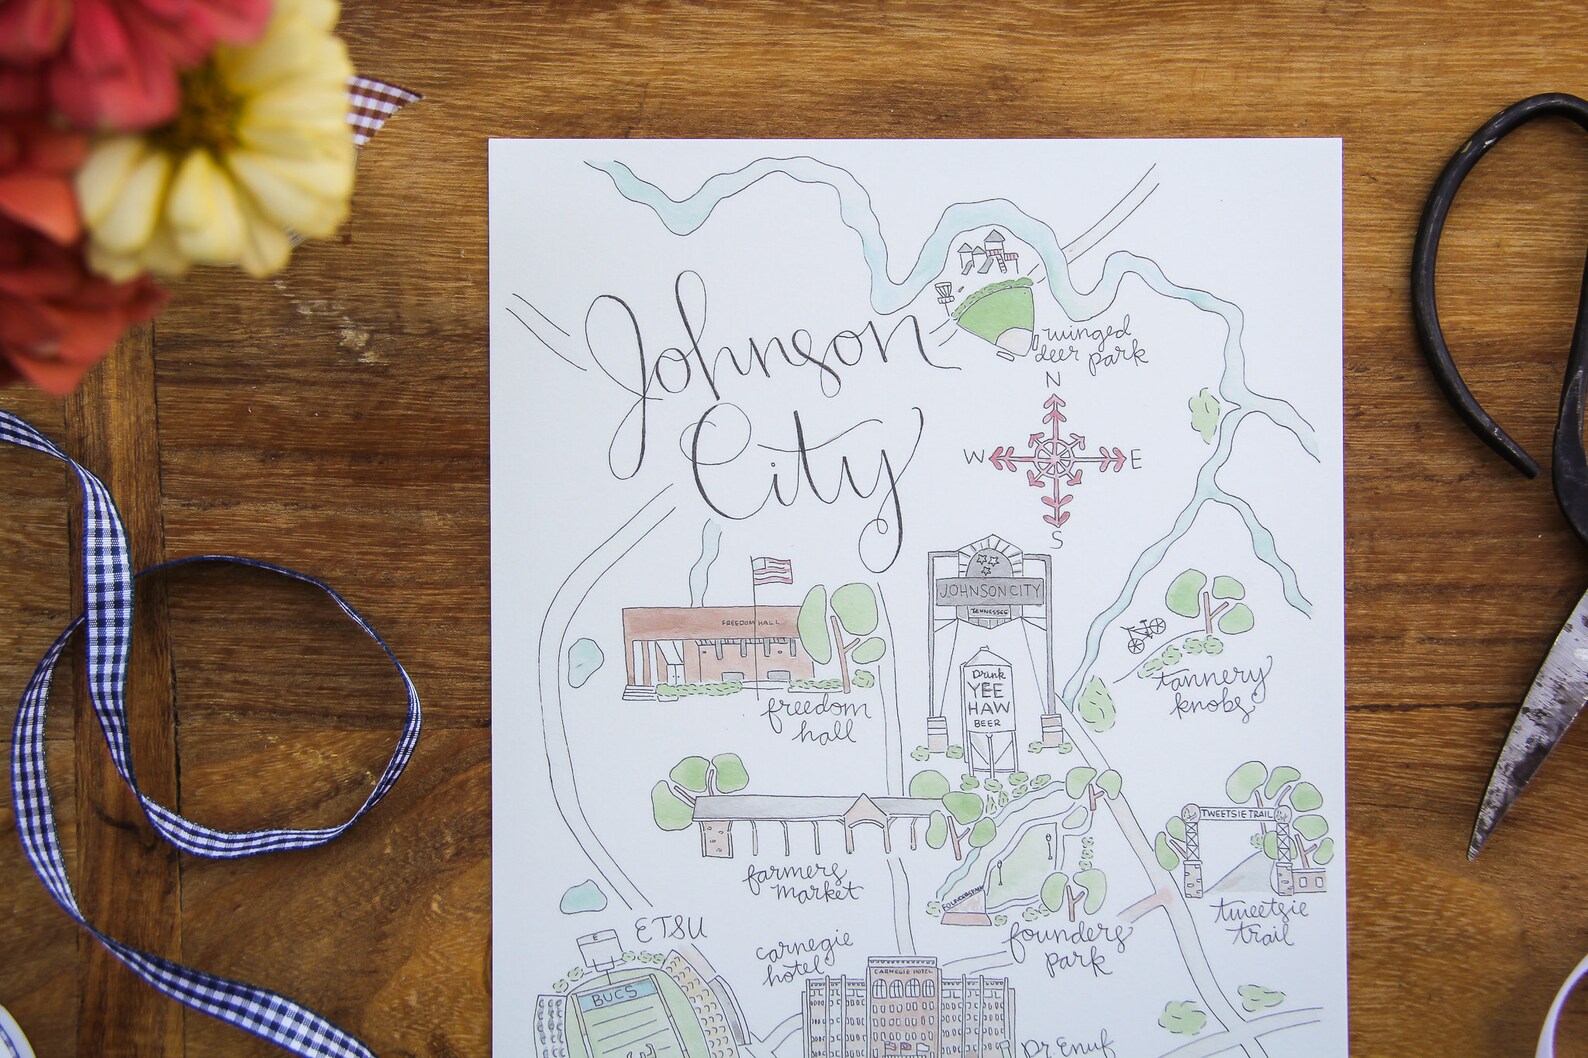 Johnson
City
winged
deer park
N
W
E
S
JOHNSON CITY
TENNESSEE
FREEDOM HALL
freedom
hall
Drink
YEE
HAW
BEER
tannery
knobs
farmers
market
TWEETSIE TRAIL
tweetsie
trail
FOUNDERS PARK
founders
park
ETSU
E
BUCS
carnegie
hotel
CARNEGIE HOTEL
Dr. Enuf